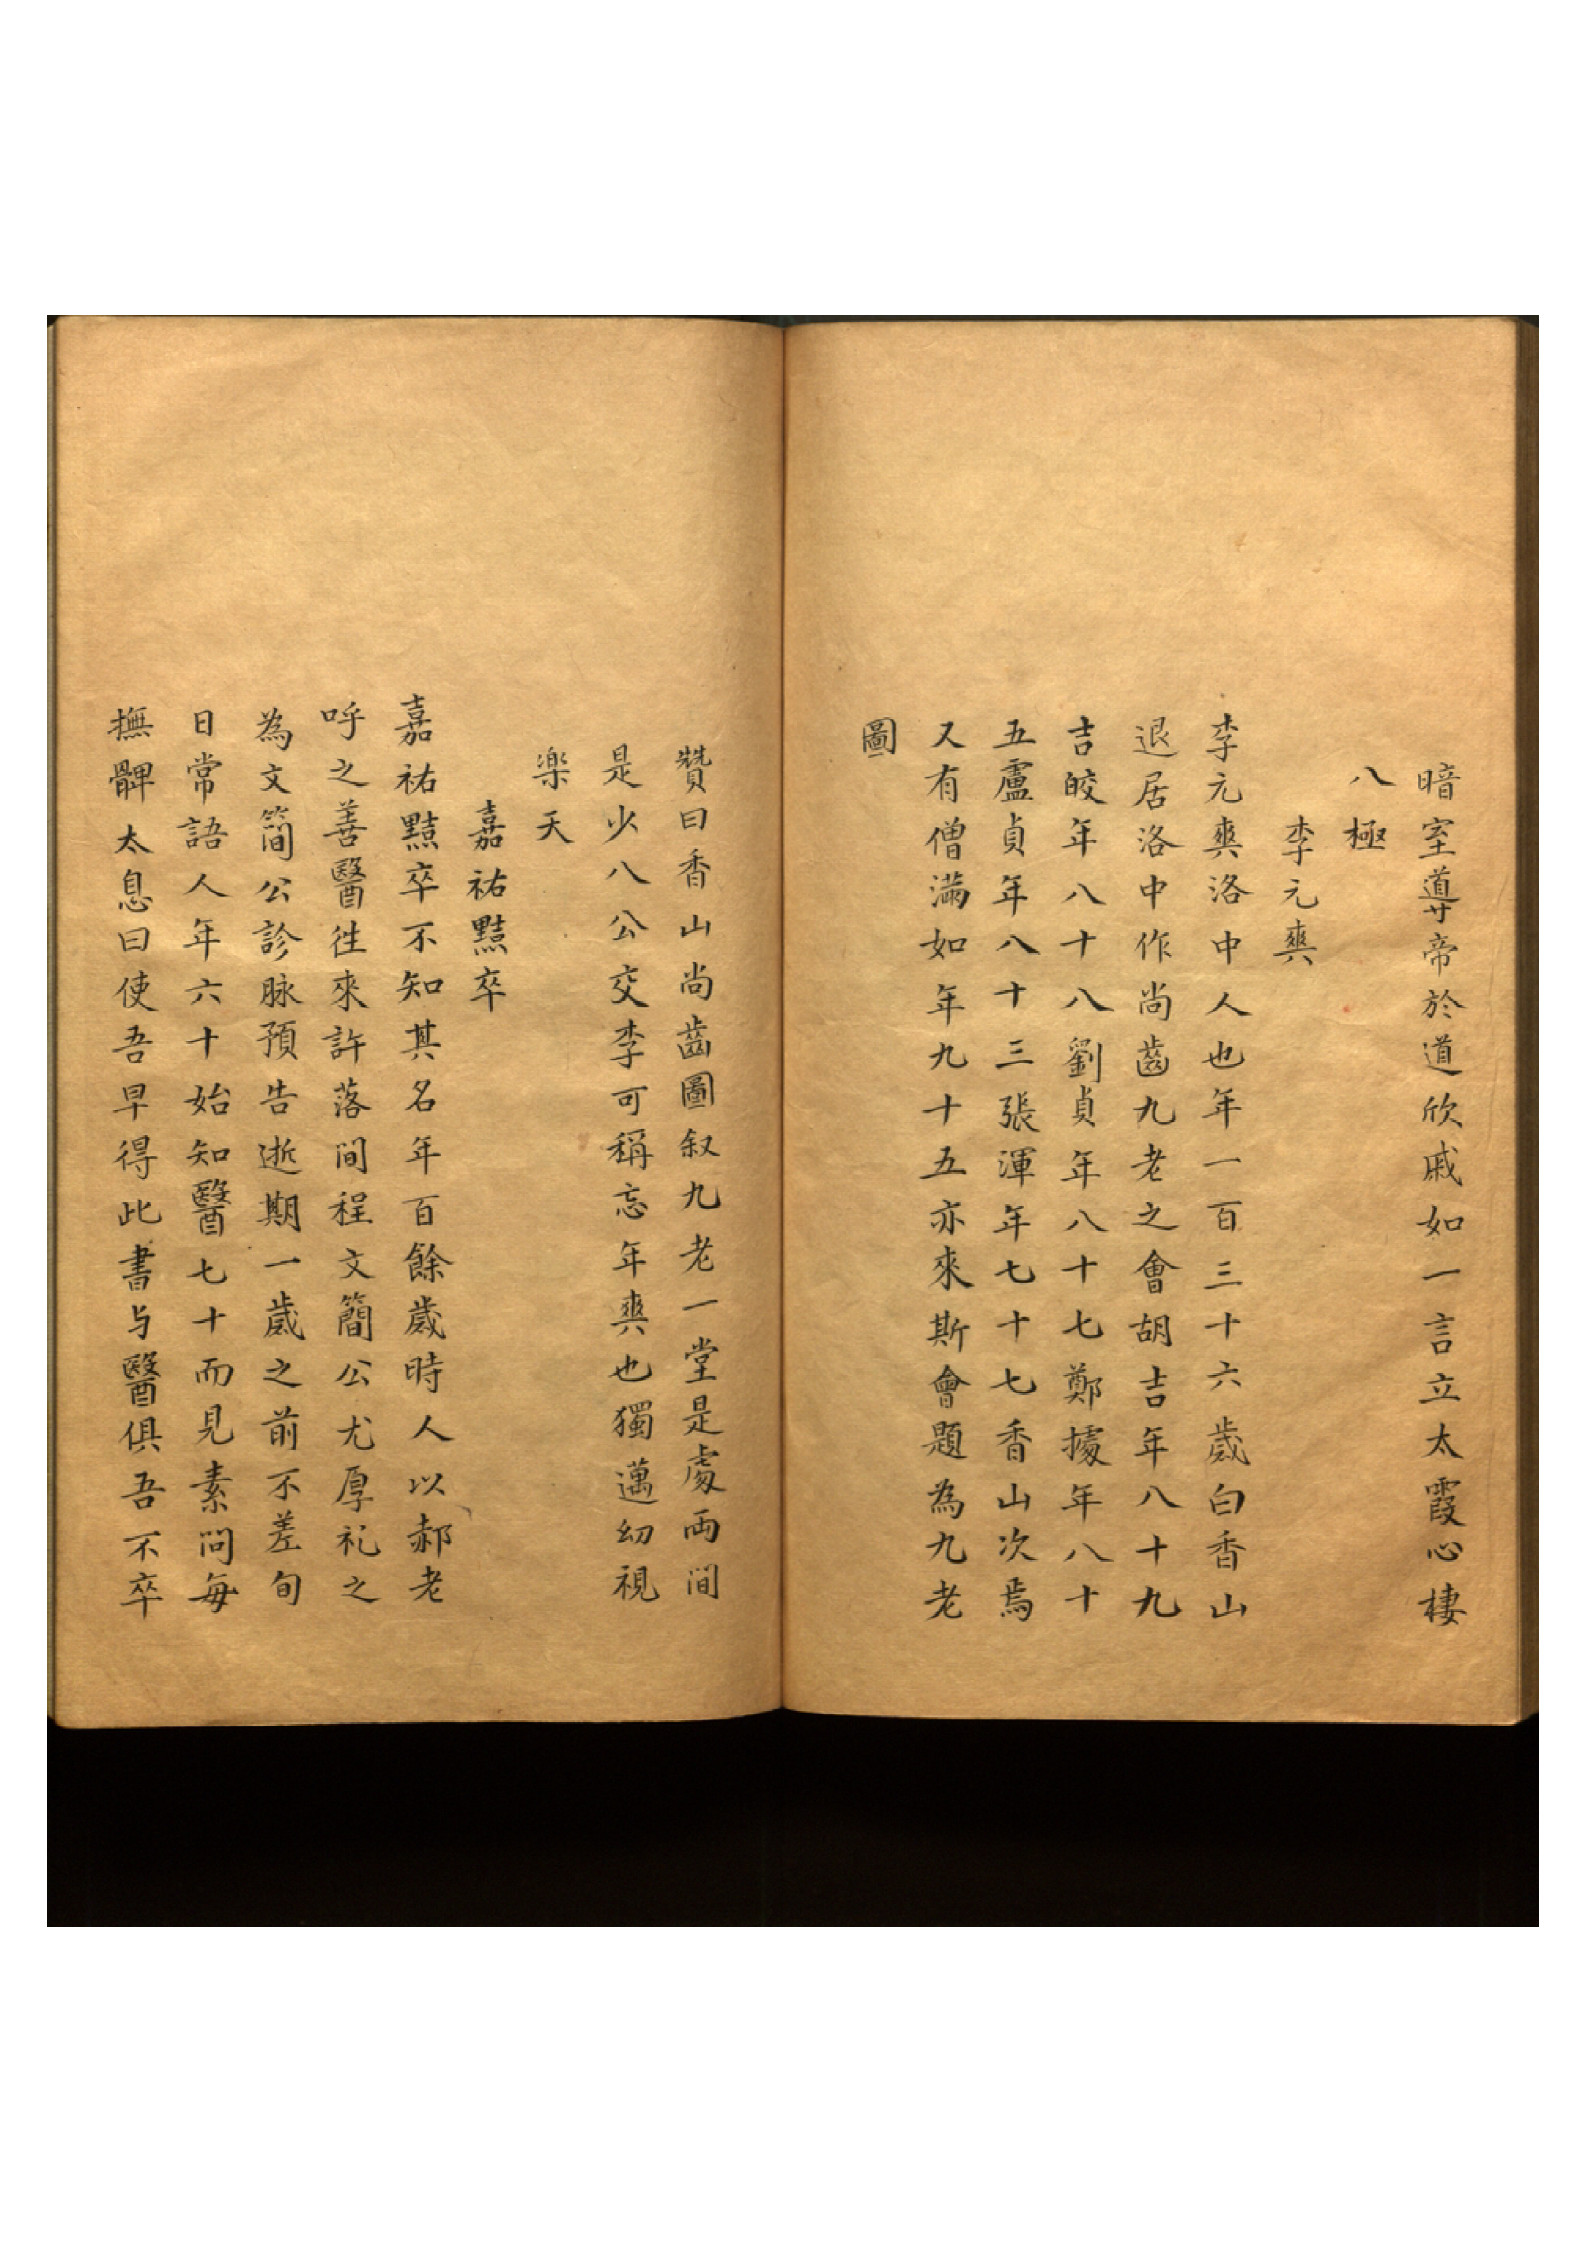 暗室導帝於道欣戚如一言立太霞心棲
八極
李元爽
李元爽洛中人也年一百三十六歲白香山
退居洛中作尚齒九老之會胡吉年八十九
吉皎年八十八劉貞年八十七鄭據年八十
五盧貞年八十三張渾年七十七香山次焉
又有僧滿如年九十五亦來斯會題為九老
圖
贊曰香山尚齒圖叙九老一堂是處両間
是少八公交李可稱忘年爽也獨邁幼視
楽天
嘉祐黥卒
嘉祐黥卒不知其名年百餘歲時人以郝老
呼之善醫徃來許落間程文簡公尤厚礼之
為文簡公診脉預告逝期一歲之前不差旬
日常語人年六十始知醫七十而見素問每
撫髀太息曰使吾早得此書与醫俱吾不卒